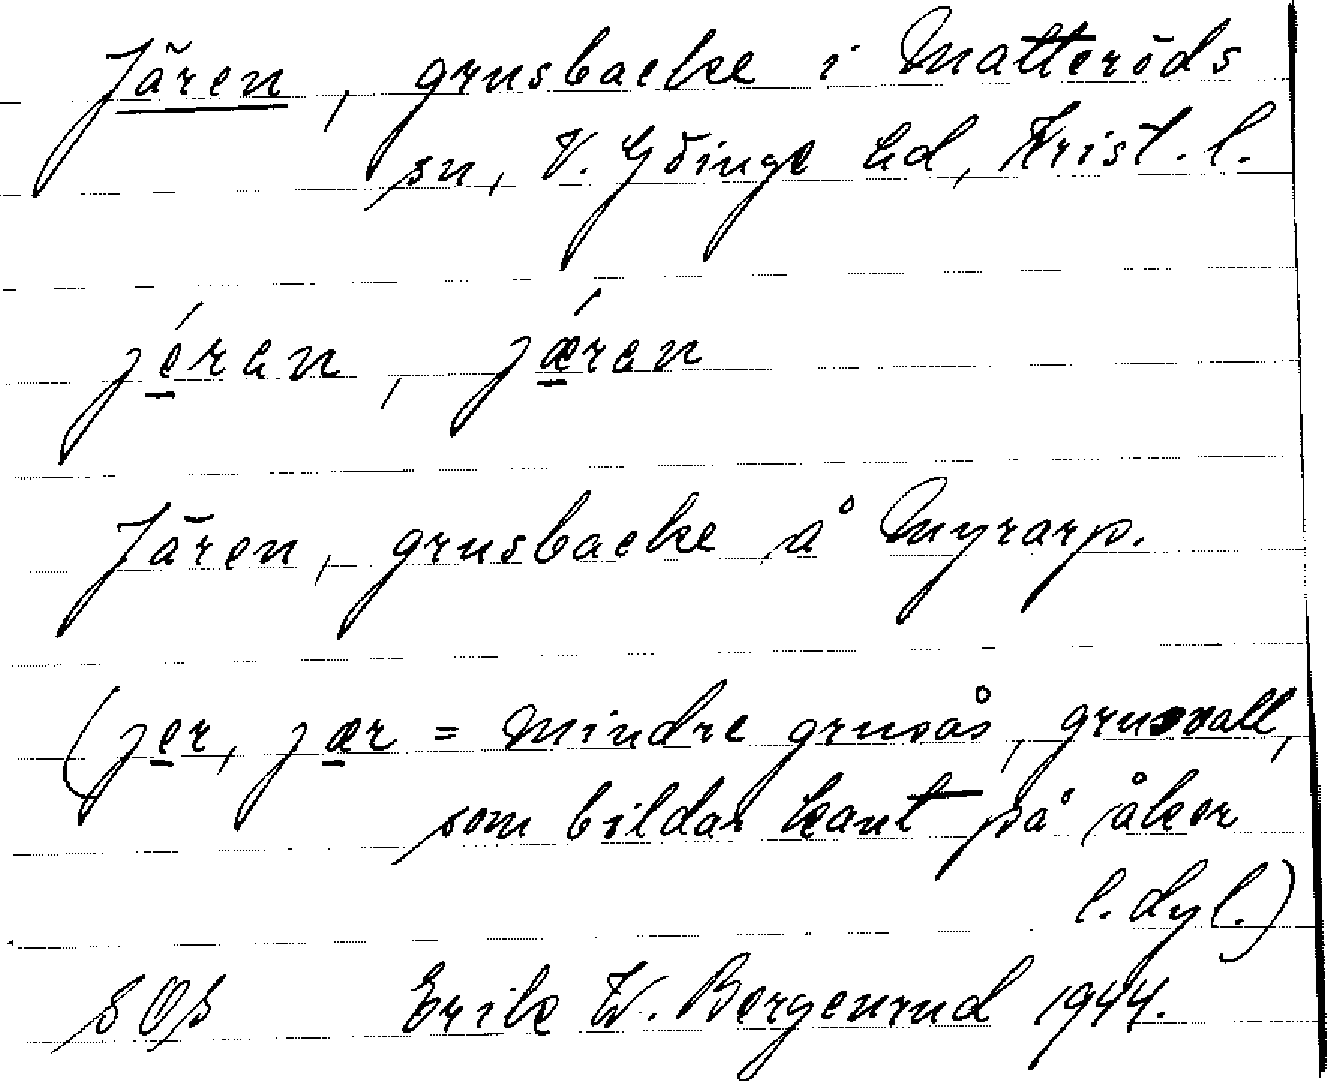 Jären, grusbacke i Matteröds
sn, V. Göinge hd, Krist. l.
jéran, jǽran
Jären, grusbacke å Myrarp.
(jer, jær = mindre grusås, grusvall,
som bildar kant på åker
l. dyl.)
SOS Erik W. Bergenrud 1944.